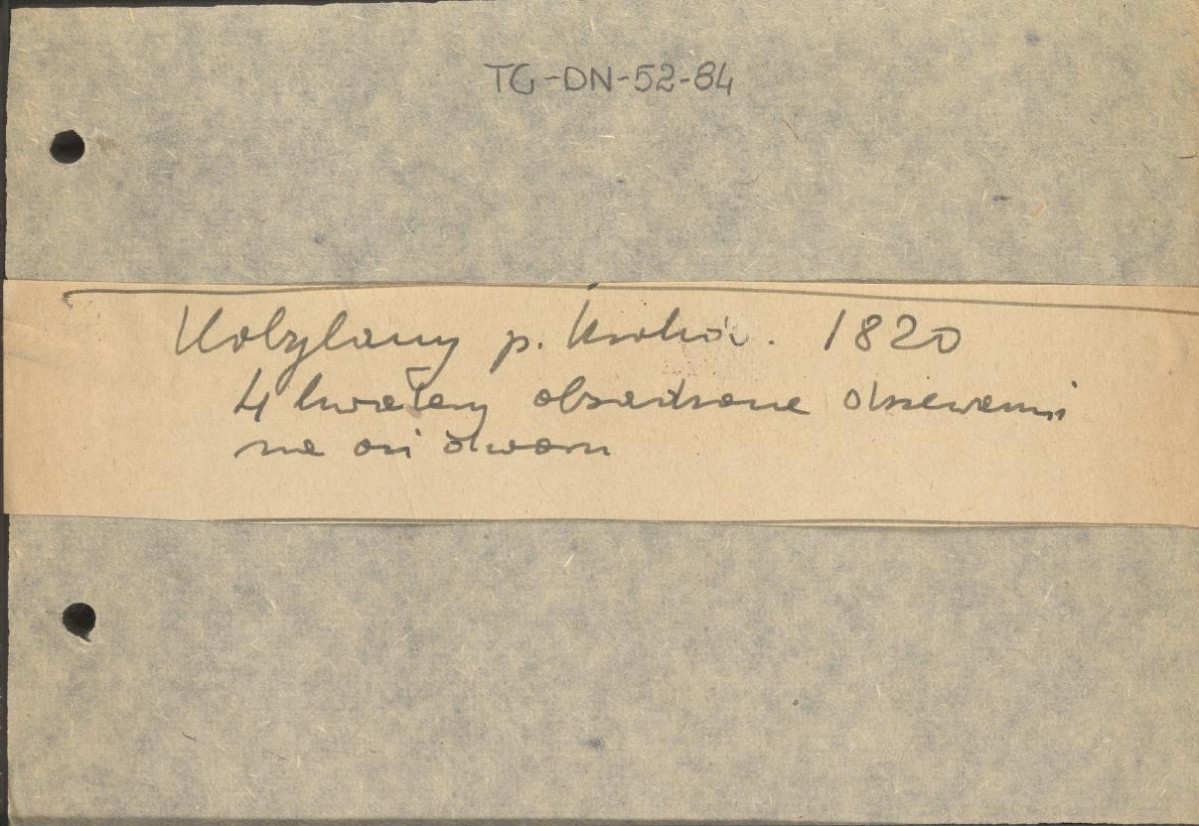 TG-DN-52-84
Kobylany p. Kraków. 1820
4 kwatery obsadzone drzewami
na osi dworu